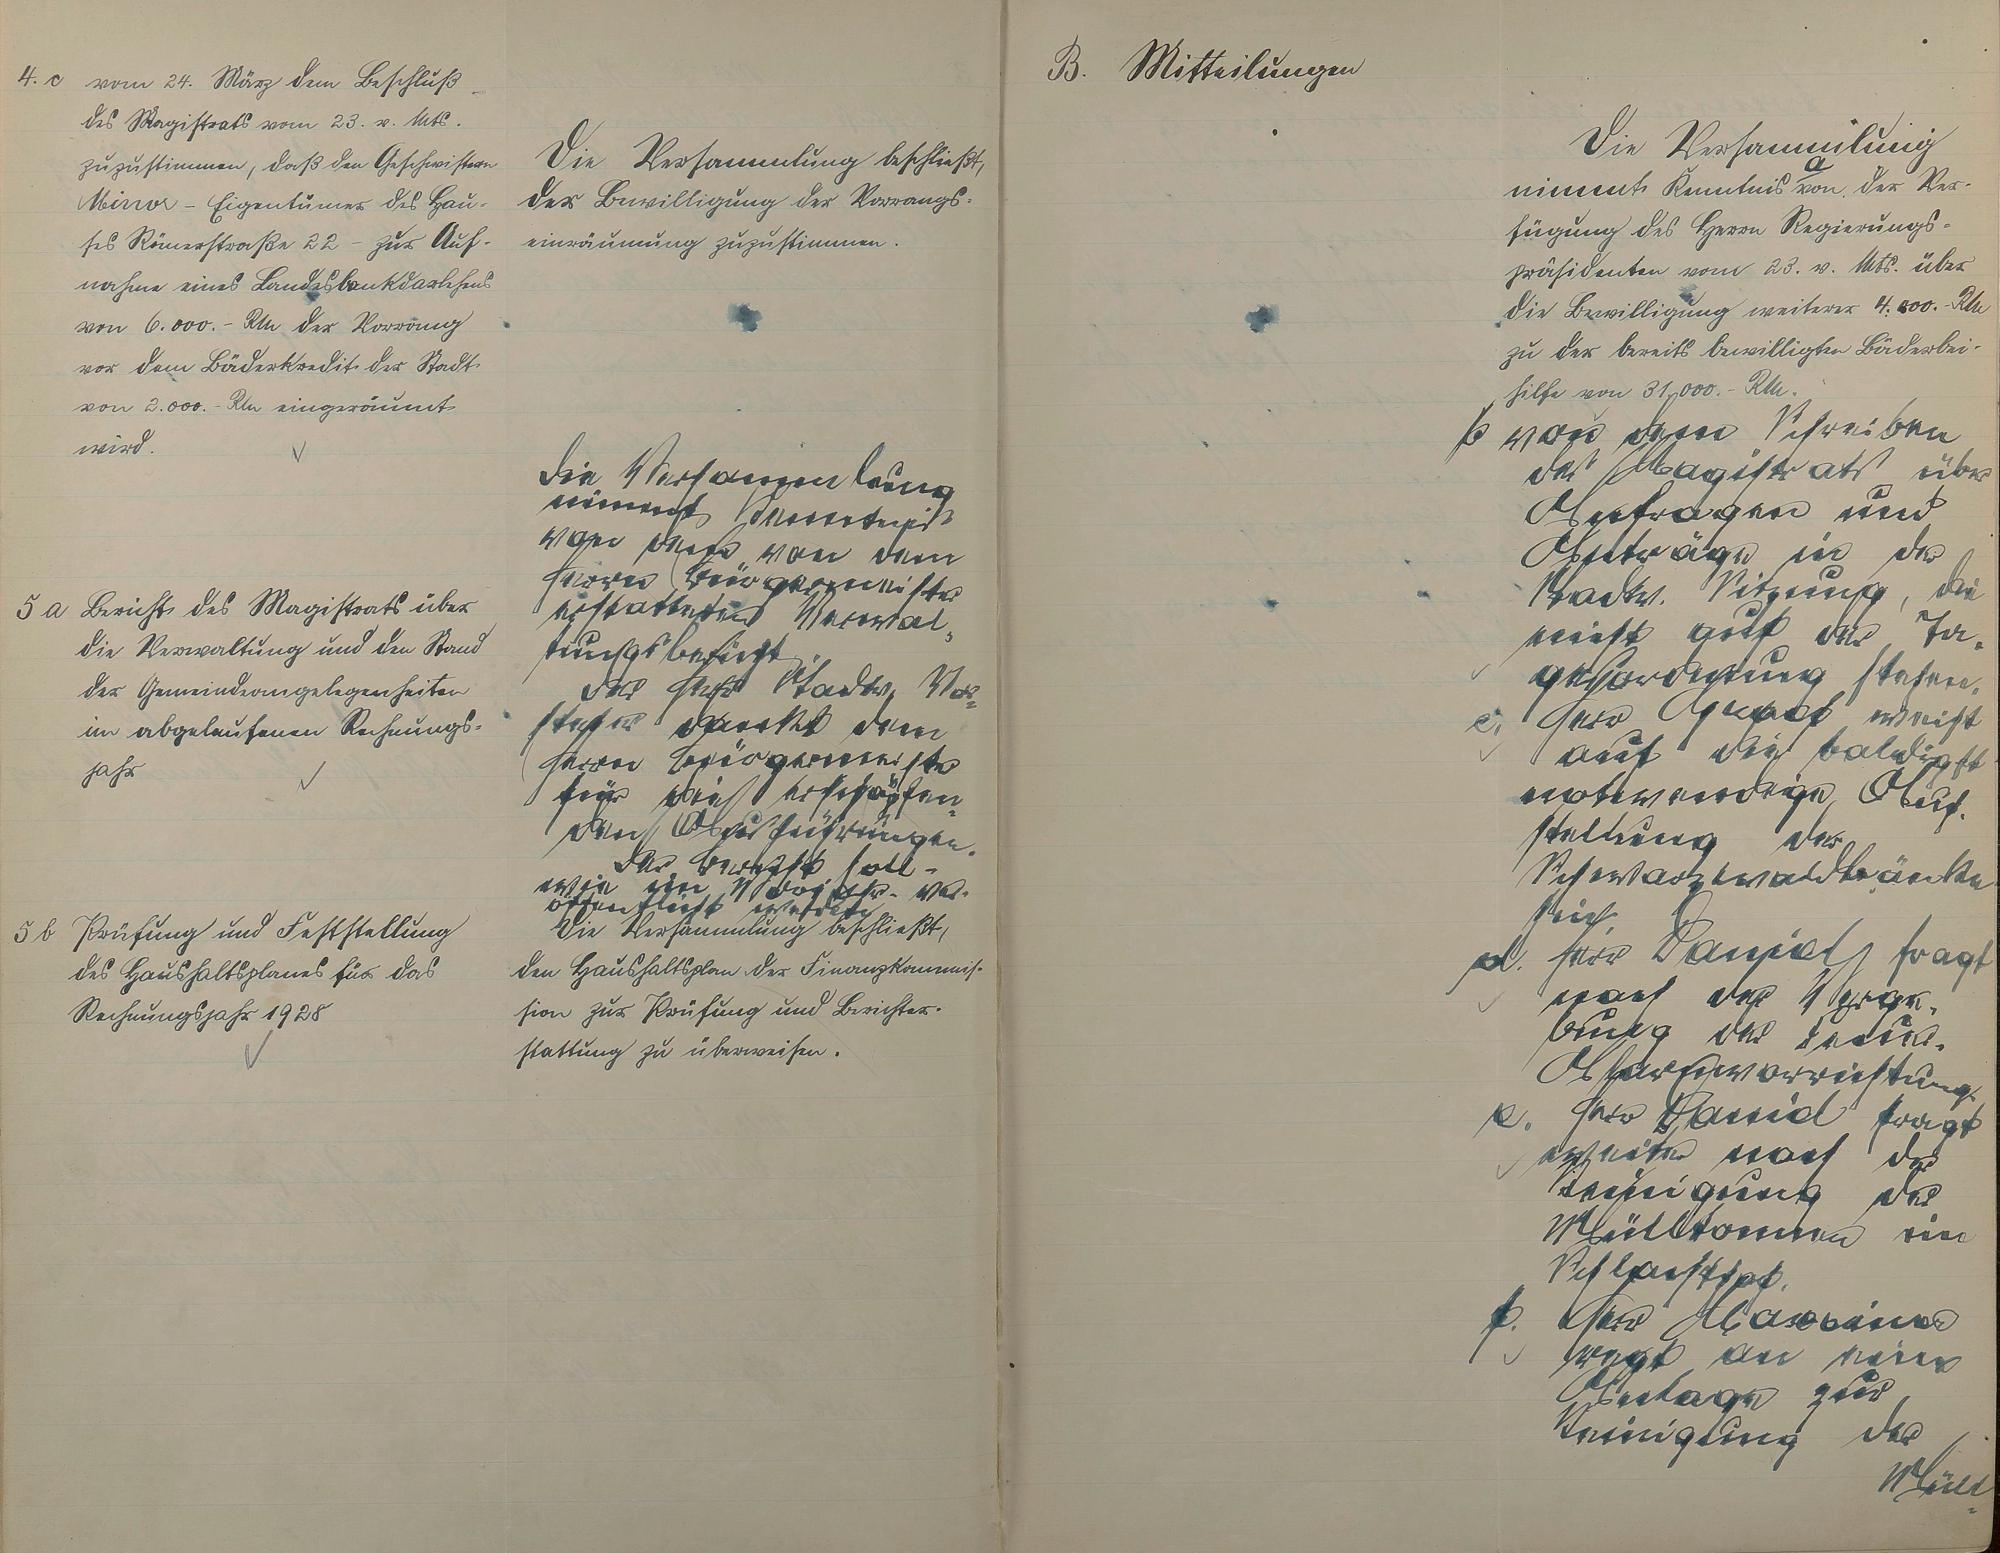 4. c vom 24. März dem Beschluß
des Magistrats vom 23. v. Mts.
zuzustimmen, daß den Geschwistern
Minor - Eigentümer des Hau-
ses Römerstraße 22 - zur Auf-
nahme eines Landesbankdarlehens
von 6.000.- RM der Vorrang
vor dem Bäderkredit der Stadt
von 2.000.- RM eingeräumt
wird.
Die Versammlung beschließt,
der Bewilligung der Vorrangs-
einräumung zuzustimmen.
5 a Bericht des Magistrats über
die Verwaltung und den Stand
der Gemeindeangelegenheiten
im abgelaufenen Rechnungs-
jahr
Die Versammlung
nimmt Kenntnis
von dem von dem
Herrn Bürgermeister
erstatteten Verwal-
tungsbericht.
Der Herr Stadtv. Vor-
steher dankt dem
Herrn Bürgermeister
für die erschöpfen-
den Ausführungen.
Der Bericht soll
wie im Vorjahr ver-
öffentlicht werden
5 b Prüfung und Feststellung
des Haushaltsplanes für das
Rechnungsjahr 1928
Die Versammlung beschließt,
den Haushaltsplan der Finanzkommis-
sion zur Prüfung und Berichter-
stattung zu überweisen.
B. Mitteilungen
Die Versammlung
nimmt Kenntnis a von der Ver-
fügung des Herrn Regierungs-
präsidenten vom 23. v. Mts. über
die Bewilligung weiterer 4.000.- RM
zu der bereits bewilligten Bäderbei-
hilfe von 31,000.- RM.
b von dem Schreiben
des Magistrats über
Anfragen und
Anträge in der
Stadtv. Sitzung, die
nicht auf der Ta-
gesordnung stehen.
c. Herr weist
auf die baldigst
notwendige Auf-
stellung der
Schwarzwaldbänke
hin.
d. Herr Daniel fragt
nach der Verge-
bung der
e. Herr Daniel fragt
weiter nach der
Reinigung der
Mülltonnen im
Schlachthof.
f. Herr
regt an eine
Anlage zur
Reinigung der
Müll-